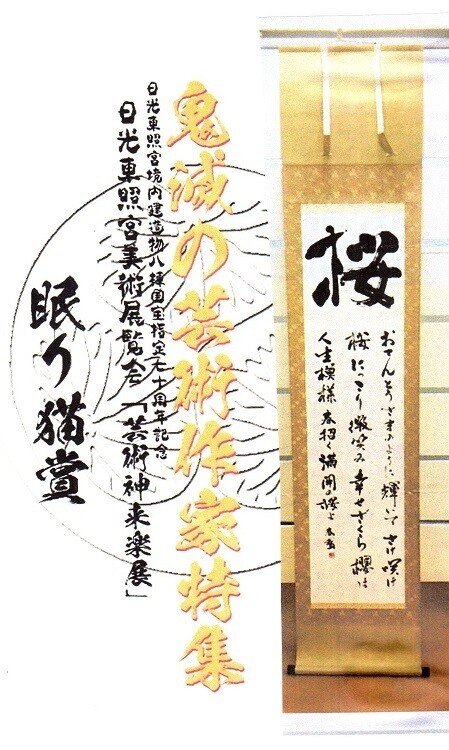 桜
おてんとうさまのように 輝いて さけ咲け
桜 にっこり微笑み 幸せざくら 櫻は
人生模様 春招く 満開の櫻よ
鬼滅の芸術作家特集
日光東照宮境内建造物八棟国宝指定七十周年記念
日光東照宮美術展覧会「芸術神来楽展」
眠り猫賞